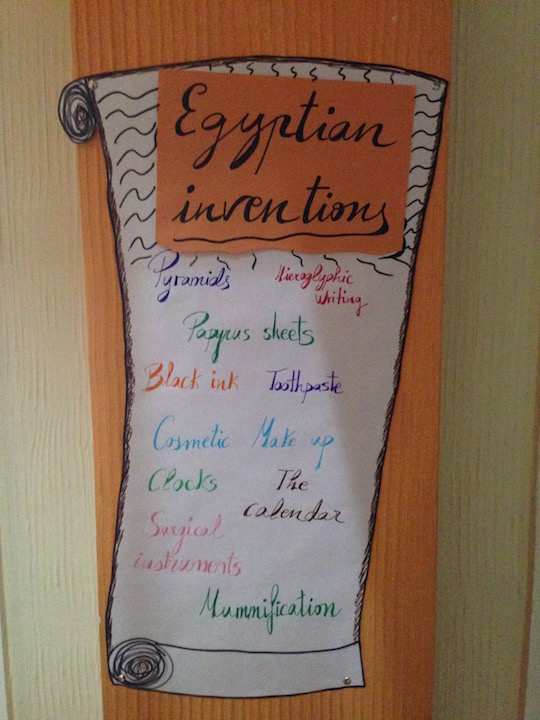 Egyptian
inventions
Pyramids
Hieroglyphic
Writing
Papyrus sheets
Black ink
Toothpaste
Cosmetic Make up
Clocks
The
calendar
Surgical
instruments
Mummification